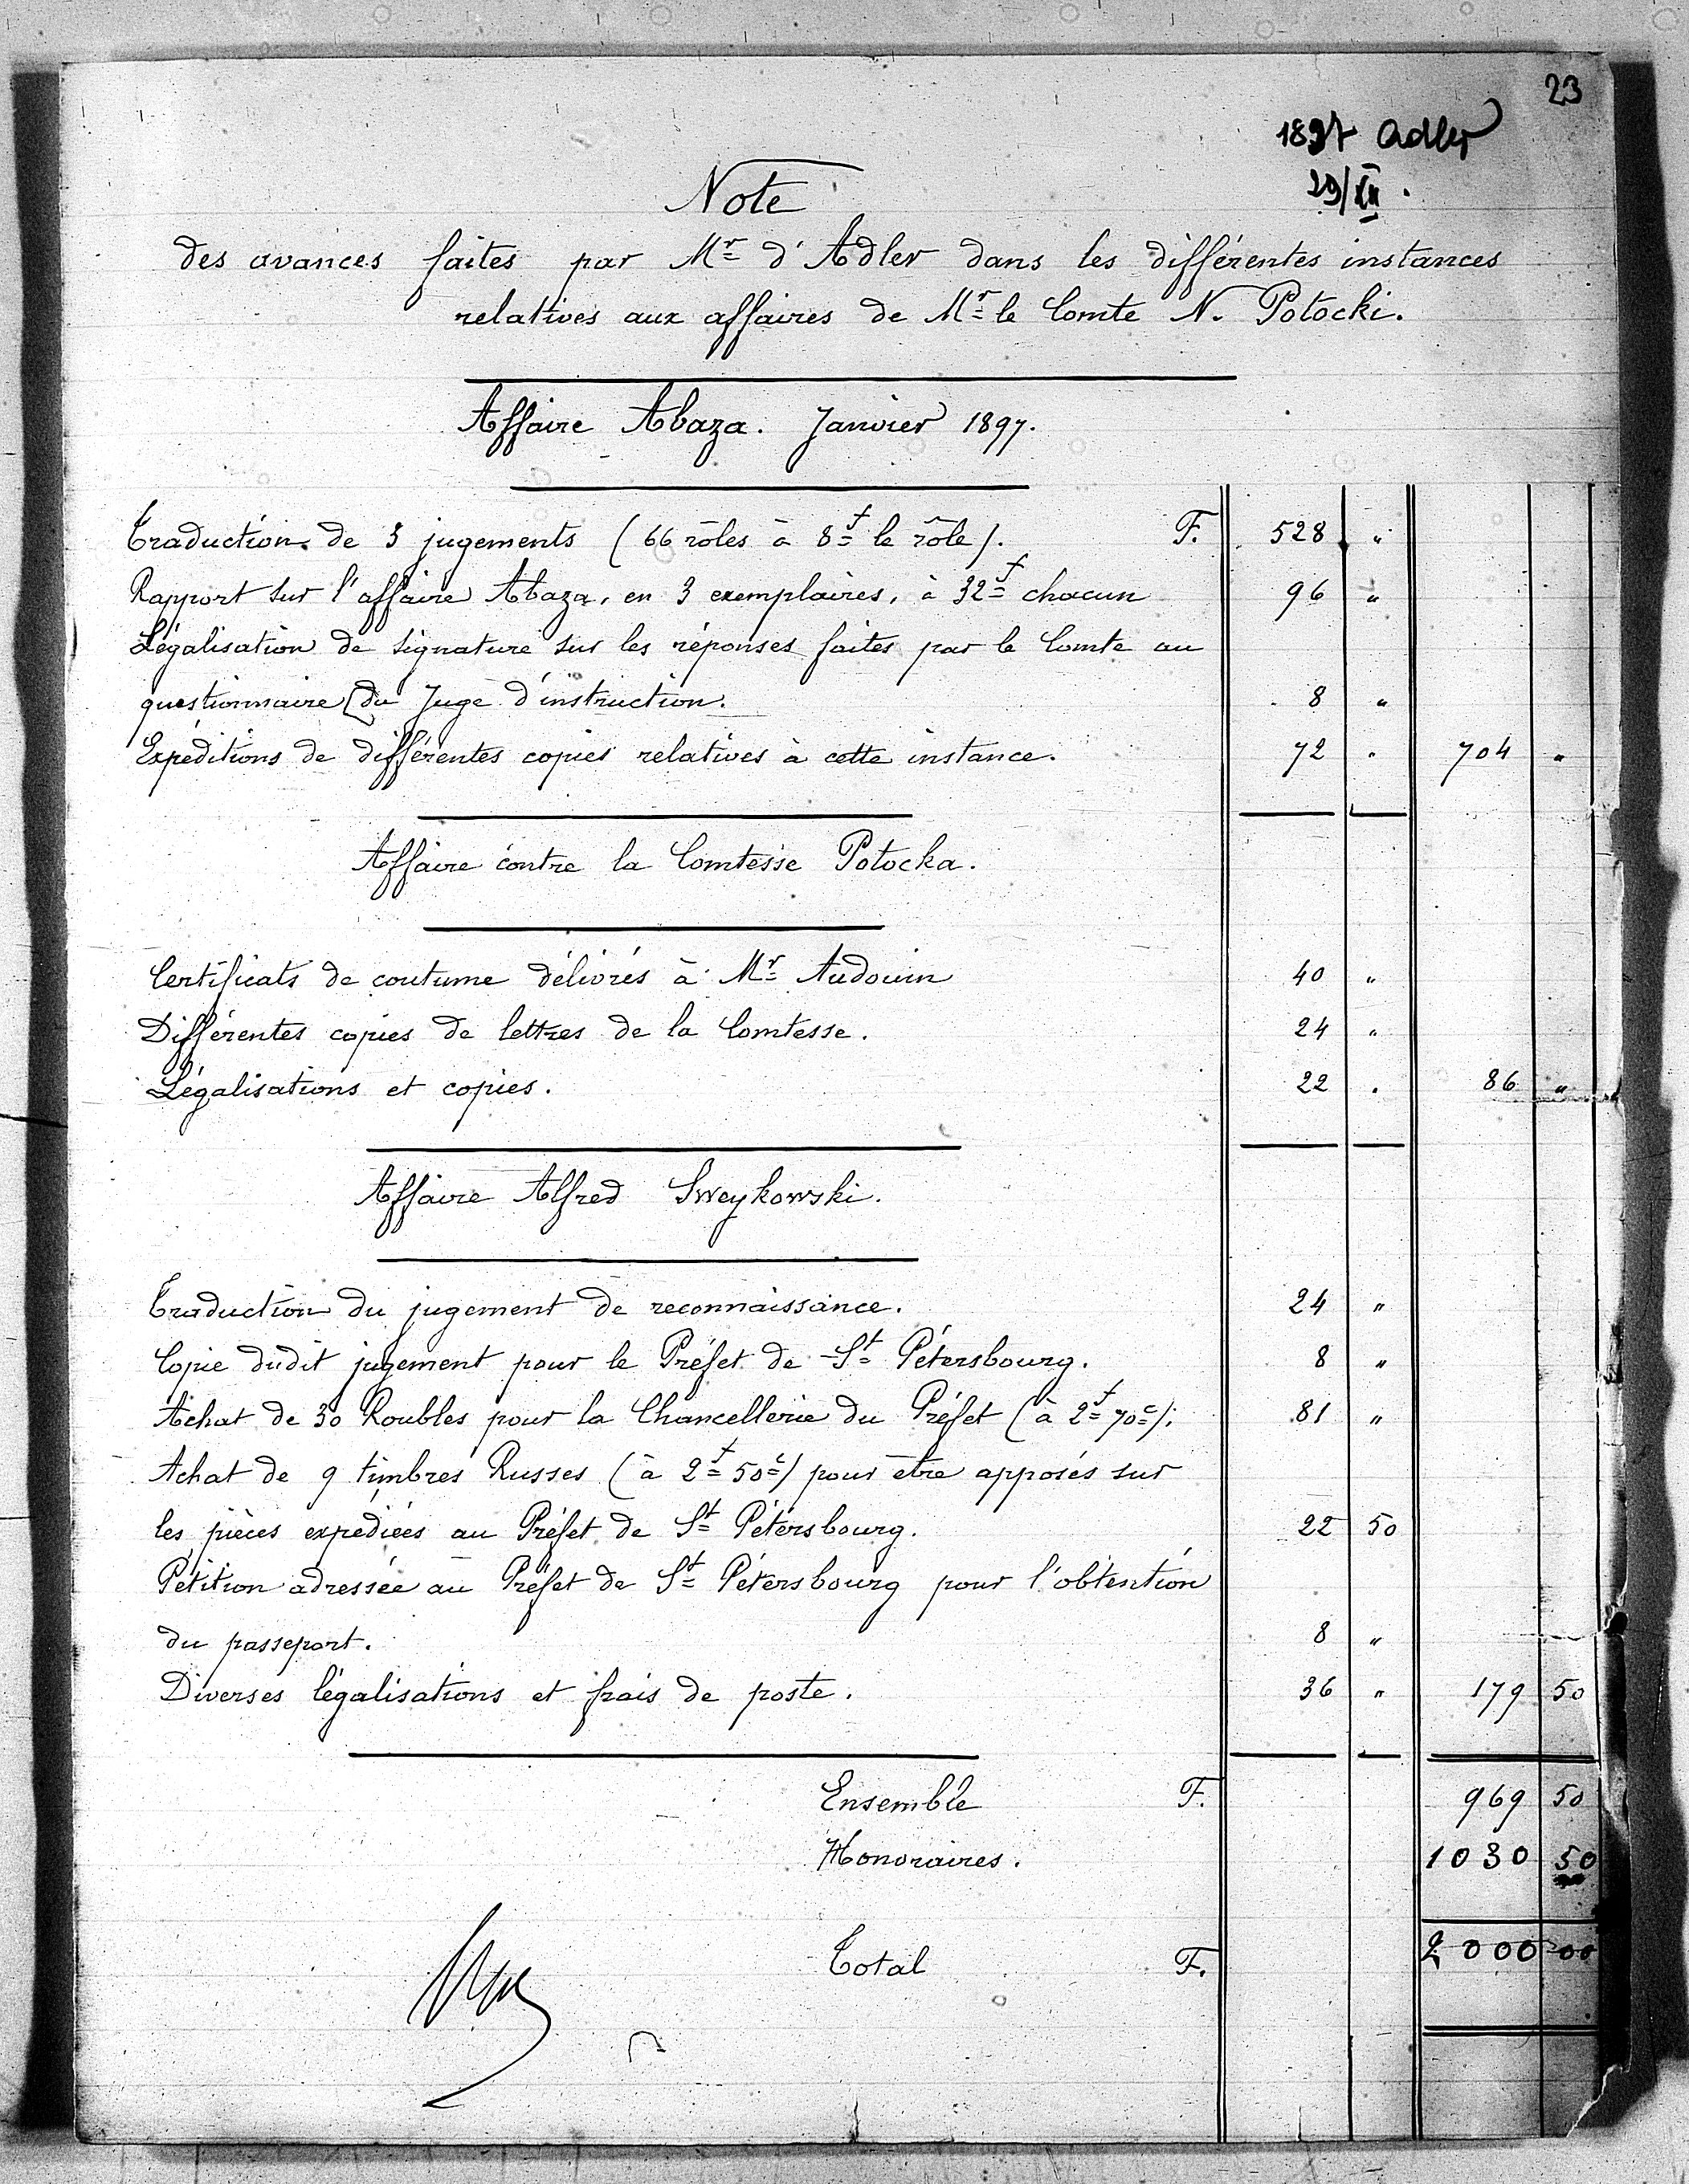 23
1897 Adler
29/XII.
Note
des avances faites par Mr d'Adler dans les différentes instances
relatives aux affaires de Mr le Comte N. Potocki.
Affaire Abaza. Janvier 1897.
Traduction de 3 jugements (66 rôles à 8f le rôle). F. 528 "
Rapport sur l'affaire Abaza, en 3 exemplaires, à 32f chacun 96 "
Légalisation de signature sur les réponses faites par le Comte au
questionnaire du Juge d'instruction. 8 "
Expéditions de différentes copies relatives à cette instance. 72 " 704 "
Affaire contre la Comtesse Potocka.
Certificats de coutume délivrés à Mr Audouin 40 "
Différentes copies de lettres de la Comtesse. 24 "
Légalisations et copies. 22 " 86 "
Affaire Alfred Sweykowski.
Traduction du jugement de reconnaissance. 24 "
Copie dudit jugement pour le Préfet de St Pétersbourg. 8 "
Achat de 30 Roubles pour la Chancellerie du Préfet (à 2f 70c). 81 "
Achat de 9 timbres Russes (à 2f 50c) pour être apposés sur
les pièces expédiées au Préfet de St Pétersbourg. 22 50
Pétition adressée au Préfet de St Pétersbourg pour l'obtention
du passeport. 8 "
Diverses légalisations et frais de poste. 36 " 179 50
Ensemble F. 969 50
Honoraires. 1030 50
Total F. 2000 00